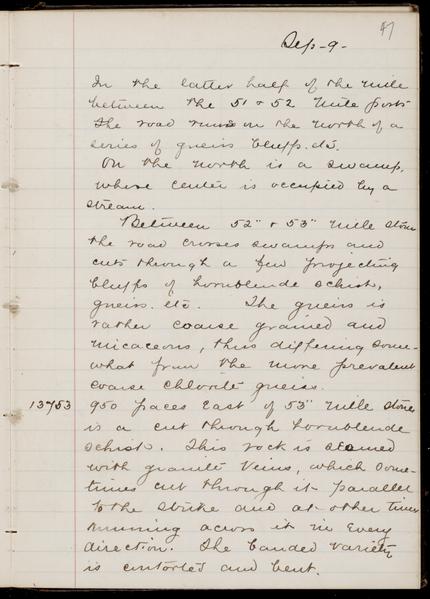 47
Sep-9-
In the latter half of the mile
between the 51 & 52 mile posts
the road runs on the north of a
series of gneiss bluffs. &c.
On the north is a swamp,
whose center is occupied by a
stream.
Between 52" & 53" mile stone
the road crosses swamps and
cuts through a few projecting
bluffs of hornblende schist,
gneiss. etc. The gneiss is
rather coarse grained and
micaceous, thus differing some-
what from the more prevalent
coarse chlorite gneiss.
13753 950 paces East of 53" mile stone
is a cut through hornblende
schist. This rock is seamed
with granite veins, which some-
times cut through it parallel
to the strike and at other times
running across it in every
direction. The banded variety
is contorted and bent.